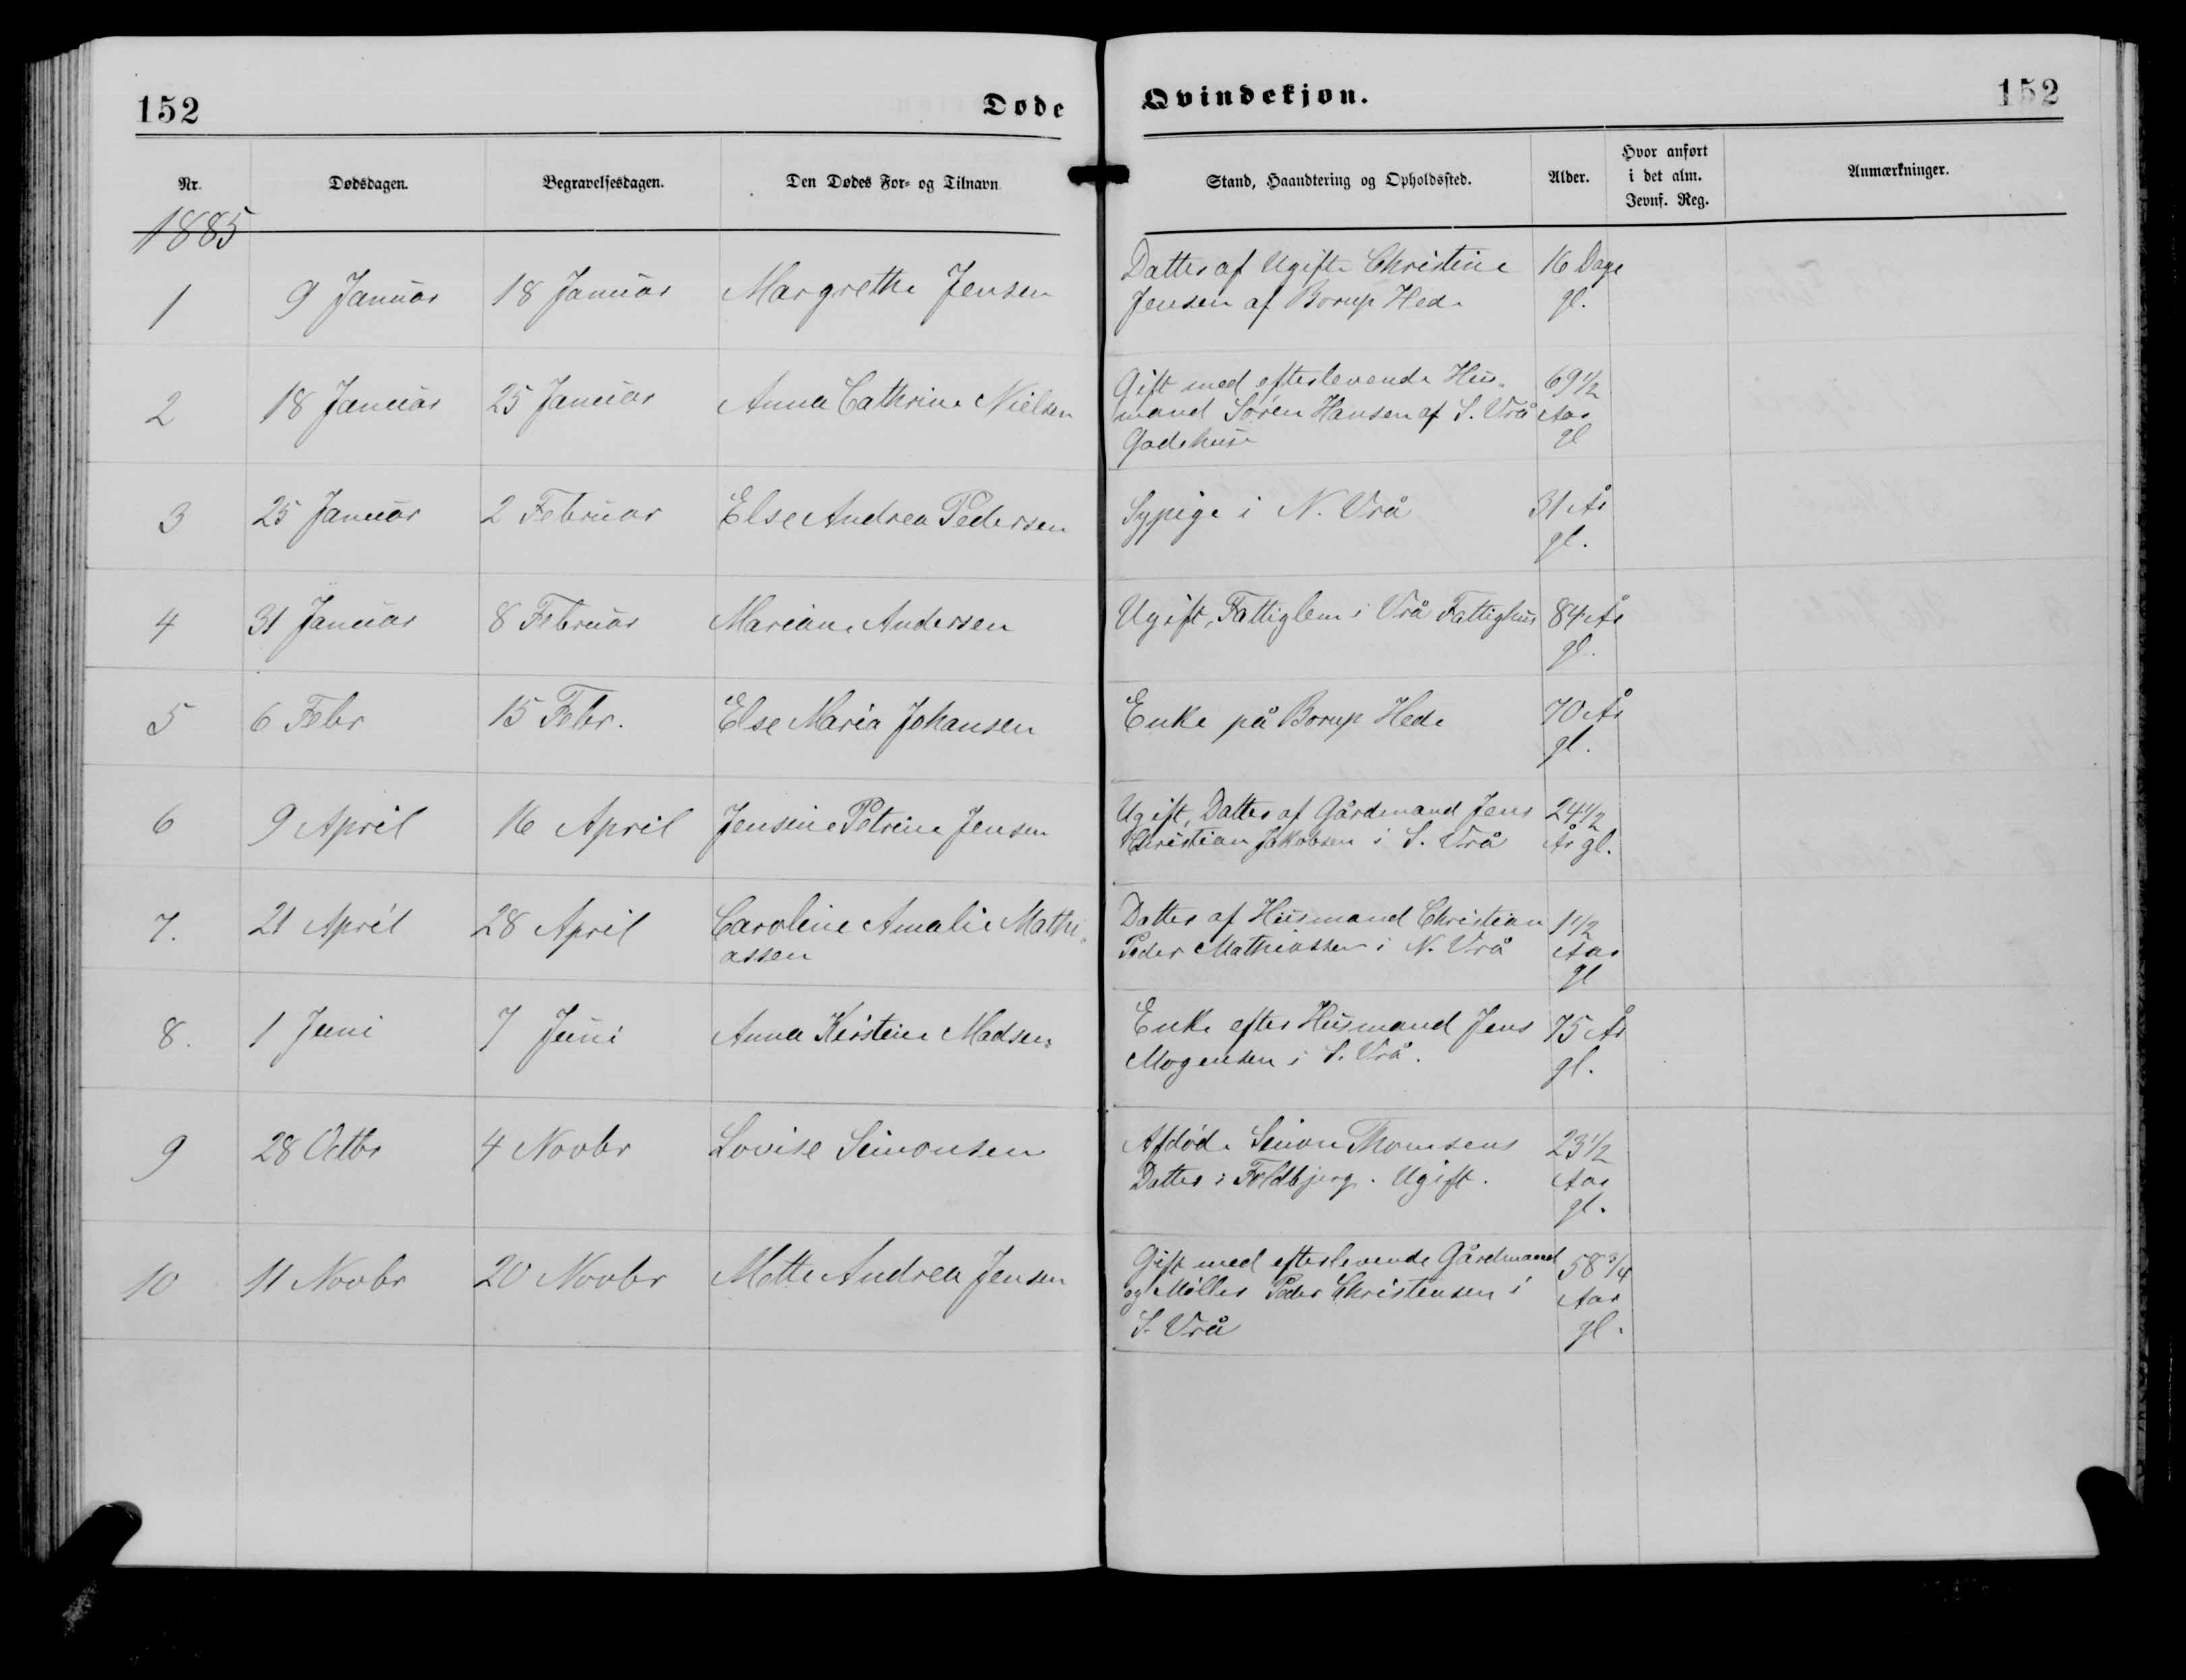 152 Døde Qvindekjøn. 152
Nr. Dødsdagen. Begravelsesdagen. Den Dødes For- og Tilnavn Stand, Haandtering og Opholdssted. Alder. Hvor anført i det alm. Jevnf. Reg. Anmærkninger.
1885
1 9 Januar 18 Januar Margrethe Jensen Datter af Ugifte Christine 16 Dage
Jensen af Borup Hede gl.
2 18 Januar 25 Januar Anna Cathrine Nielsen Gift med efterlevende Hus- 69 1/2
mand Søren Hansen af S. Vrå Aar
Gadehuse gl
3 25 Januar 2 Februar Else Andrea Pedersen Sypige i N. Vrå 31 År
gl.
4 31 Januar 8 Februar Mariane Andersen Ugift, Fattiglem i Vrå Fattighus 84 År
gl.
5 6 Febr 15 Febr. Else Maria Johansen Enke på Borup Hede 70 År
gl.
6 9 April 16 April Jensine Petrine Jensen Ugift, Datter af Gårdmand Jens 24 1/2
Christian Jakobsen i S. Vrå År gl.
7. 21 April 28 April Caroline Amalie Mathi- Datter af Husmand Christian 1 1/2
assen Peder Mathiassen i N. Vrå Aar
gl
8. 1 Juni 7 Juni Anna Kirstine Madsen Enke efter Husmand Jens 75 År
Mogensen i S. Vrå. gl.
9 28 Octbr 4 Novbr Lovise Simonsen Afdøde Simon Thomsens 23 1/2
Datter i Foldbjerg. Ugift. Aar
gl.
10 11 Novbr 20 Novbr Mette Andrea Jensen Gift med efterlevende Gårdmand 58 3/4
og Møller Peder Christensen i Aar
S. Vrå gl.